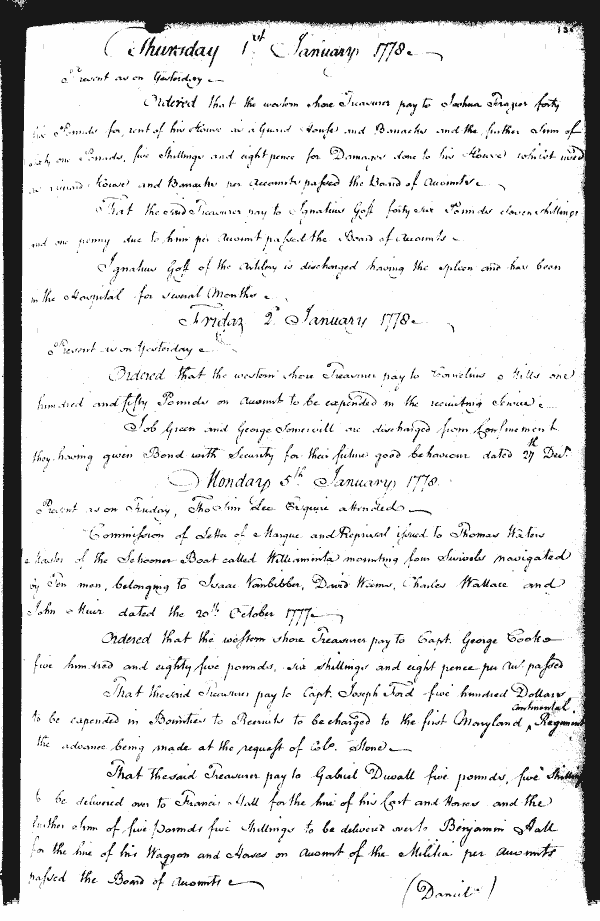 Thursday 1st January 1778
Present as on Yesterday
Ordered that the western shore Treasurer pay to Joshua Frazier forty
five Pounds for rent of his House as a Guard House and Barracks and the further Sum of
sixty one Pounds, five Shillings and eight pence for Damages done to his House whilst used
as Guard House and Barracks per Accounts passed the Board of Accounts
That the said Treasurer pay to Ignatius Goff forty six Pounds eleven shillings
and one penny due to him per Account passed the Board of Accounts
Ignatius Goff of the Artillery is discharged having the spleen and has been
in the Hospital for several Months
Friday 2d January 1778
Present as on Yesterday
Ordered that the western shore Treasurer pay to Cornelius Mills one
hundred and fifty Pounds on Account to be expended in the recruiting Service
Job Green and George Somervill are discharged from Confinement
they having given Bond with Security for their future good behaviour dated 27th Decr
Monday 5th January 1778
Present as on Friday, Tho Sim Lee Esquire attended
Commission of Letter of Marque and Reprisal issued to Thomas Waters
Master of the Schooner Boat called Williaminta mounting four Swivels navigated
by Ten men, belonging to Isaac Vanbibber, David Weems, Charles Wallace and
John Muir dated the 20th October 1777
Ordered that the western shore Treasurer pay to Capt. George Cook
five hundred and eighty five pounds, six shillings and eight pence per Acct passed
That the said Treasurer pay to Capt. Joseph Ford five hundred Dollars
Continental
to be expended in Bounties to Recruits to be charged to the first Maryland Regiment
the advance being made at the request of Colo. Stone
That the said Treasurer pay to Gabriel Duvall five pounds, five Shillings
to be delivered over to Francis Hall for the hire of his Cart and Horses and the
further Sum of five Pounds five Shillings to be delivered over to Benjamin Hall
for the hire of his Waggon and Horses on Account of the Militia per Accounts
passed the Board of Accounts
(Daniel)